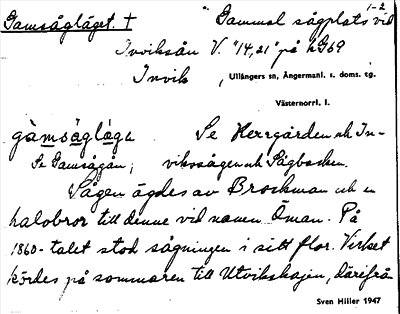 1-2
Gamsågläget. † "Gammal sågplats vid
Inviksån V. "14,21" på kg69
Invik, Ullångers sn, Ångermanl. s. doms. tg.
Västernorrl. l.
gàmsågläga Se Herrgården och In-
Se Gamsågån; vikssågen och Sågbacken.
Sågen ägdes av Brockman och en
halvbror till denne vid namn Öman. På
1860-talet stod sågningen i sitt flor. Virket
kördes på sommaren till Utvikshajen, därifrån
Sven Hiller 1947